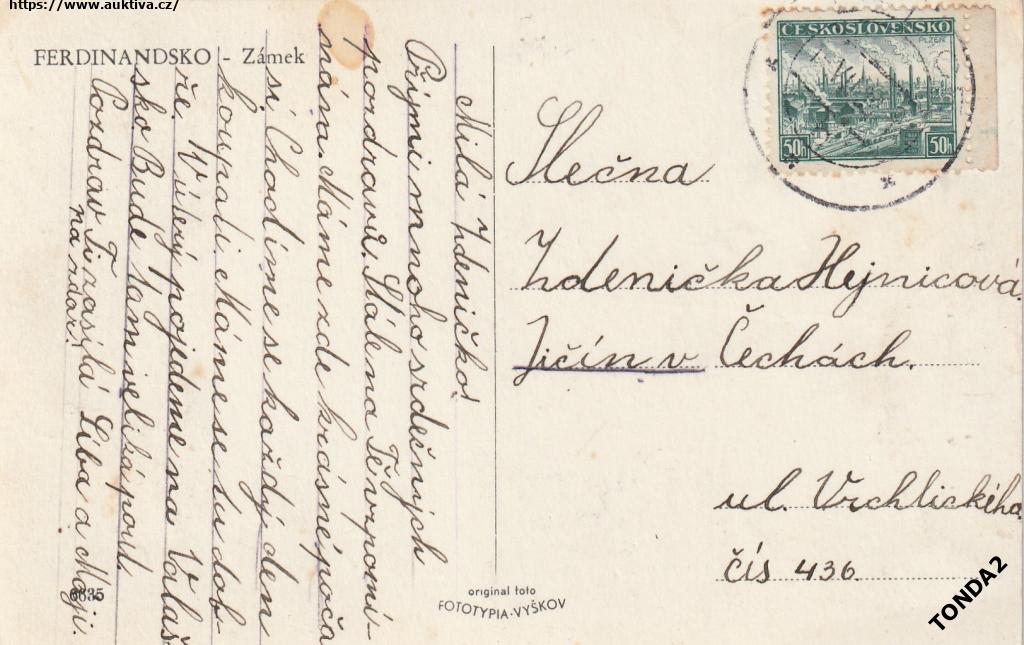 https://www.auktiva.cz/
FERDINANDSKO - Zámek
Milá Zdeničko!
Přijmi mnoho srdečných
pozdravů. Stále na Tě vzpomí-
náme. Máme zde krásné poča-
sí. Chodíme se každý den
koupati. Máme se tu dob-
ře. V úterý pojedeme na Valaš
sko. Bude tam veliká pouť.
Pozdrav Ti zasílá Liba a Moji.
na zdar!
6635
original foto
FOTOTYPIA-VYŠKOV
ČESKOSLOVENSKO
PLZEŇ
50h 50h
Slečna
Zdenička Hejnicová
Jičín v Čechách.
ul. Vrchlického
čís 436.
TONDA2